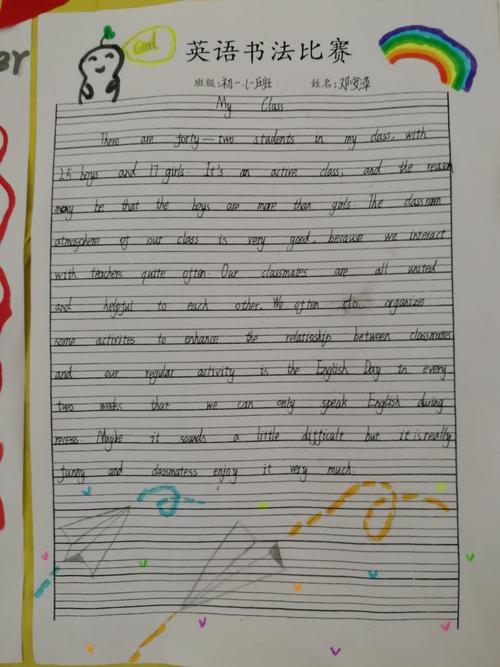 Good
英语书法比赛
班级:初一.(一)班 姓名:邓
My Class
There are forty-two students in my class, with
25 boys and 17 girls. It's an active class, and the reason
may be that the boys are more than girls. The classroom
atmosphere of our class is very good, because we interact
with teachers quite often. Our classmates are all united
and helpful to each other. We often do organize
some activities to enhance the relatioship between classmates
and our regular activity is the English Day in every
two weeks that we can only speak English during
recess. Maybe it sounds a little difficult but it is really
funny and classmatess enjoy it very much.